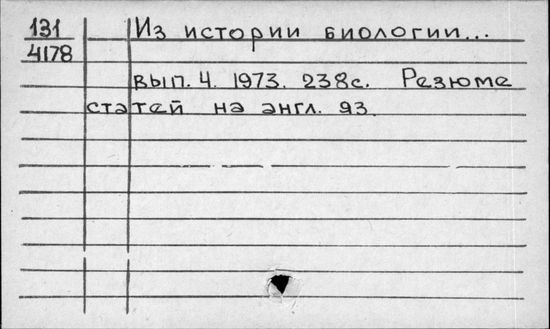 131 Из истории биологии...
4178
вып. 4. 1973. 238с. Резюме
статей на англ. яз.